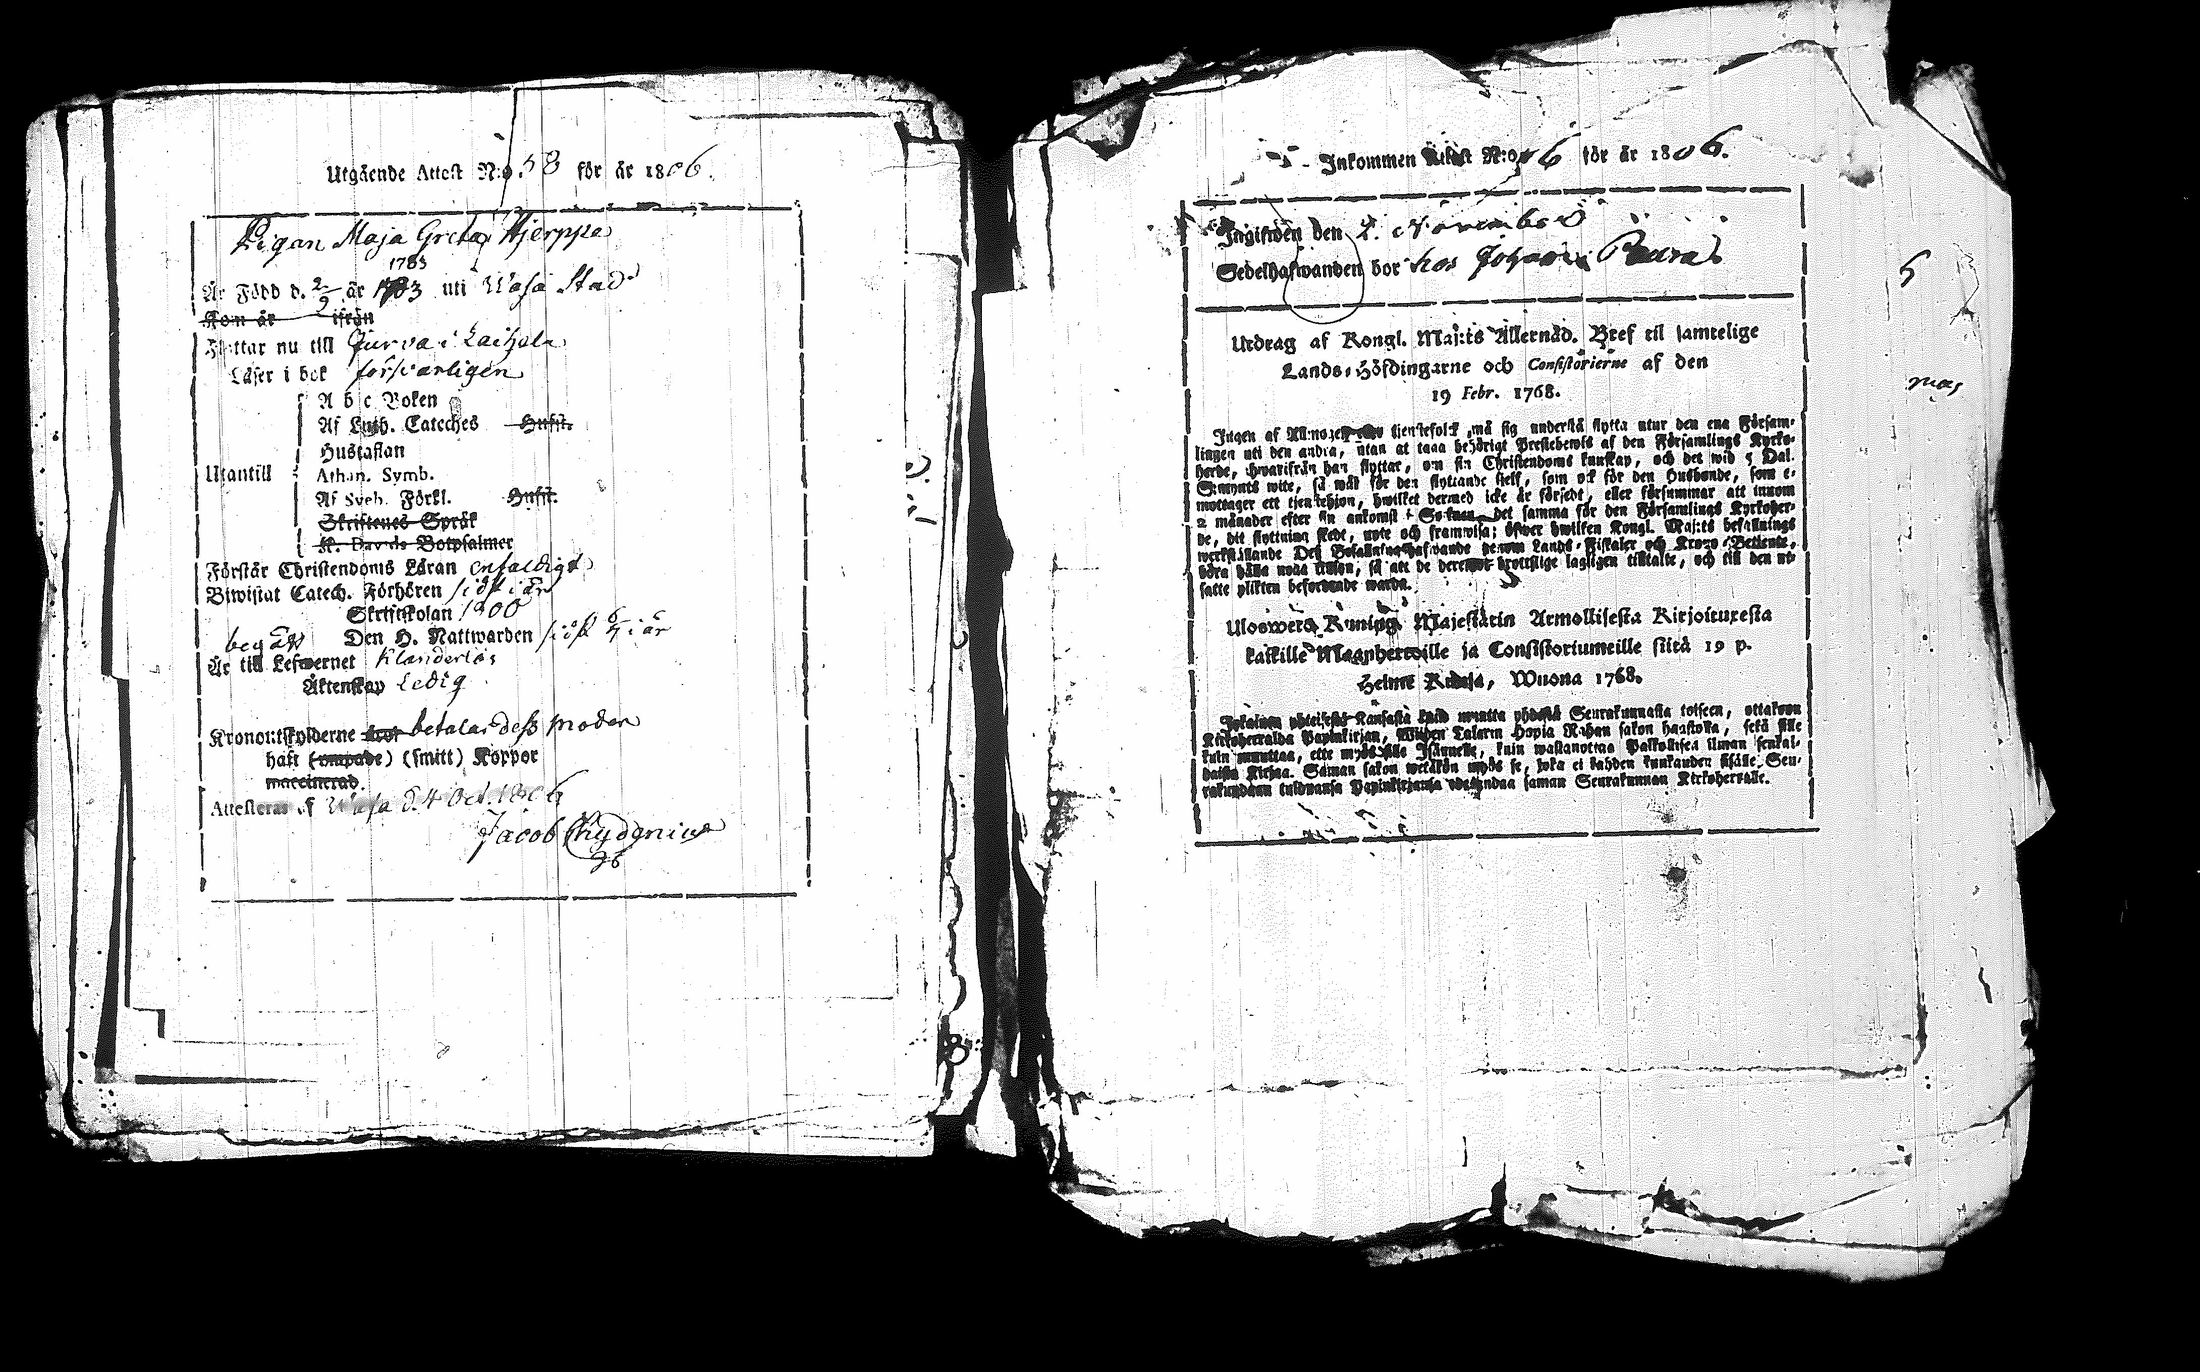 Utgående Attest N:o. 58 för år 1806.
Pigan Maja Greta Hjerppe
1783
Är Född d. 2/9 år 1783 uti Wasa Stad
Kom år ifrån
Flyttar nu till Jurva i Laihela
Läser i bok försvarligen
A b c Boken
Af Luth. Cateches Hufst.
Hustaflan
Utantill Athan. Symb.
Af Sveb. Förkl. Hufst.
Skriftenes Språk
K. Davids Botpsalmer
Förstår Christendoms Läran enfaldigt
Biwistat Catech. Förhören sidst i år
Skriftskolan 1800
begått Den H. Nattwarden sidst i år
Är till Lefwernet Klanderlös
Äktenskap Ledig
Kronoutskylderne betalar dess moder
haft (ympade) (smitt) Koppor
vaccinerad.
Attesteras af Wasa d. 4 Oct. 1806
Jacob Chydenius
Inkommen Attest N:o 6 för år 1806.
Ingifwen den 2. November
Sedelhafwanden bor hos Johan
5
Utdrag af Kongl. Maj:ts Allernåd. Bref til samtelige
Lands-Höfdingarne och Consistorierne af den
19 Febr. 1768.
Ingen af Allmogens tjenstefolck må sig understå flytta utur den ena Församlingen
uti den andra, utan at taga behörigt Prestebewis af den Församlings Kyrkoherde,
hwarifrån han flyttar, om sin Christendoms kunskap, och det wid 5 Dal.
S:mynts wite, så wäl för den flyttande sielf, som ock för den Husbonde, som emottager
ett tjenstehjon, hwilket dermed icke är försedt, eller försummar att innom
2 månader efter sin ankomst det samma för den Församlings Kyrkoherde,
dit flyttning skedt, upte och framwisa; öfwer hwilken Kongl. Maj:ts befallnings
werkställande Des Befallningshafwande genom Lands-Fiskaler och Krono-Betiente,
böra hålla noga tilsyn, så att de deremot brottslige lagligen tilltalte, och till den utsatte
plikten befordrade warda.
Uloswedä Kuning. Majestätin Armollisesta Kirjoituxesta
kaikille Maanherroille ja Consistoriumeille siitä 19 p.
Helme Kuusa, Wuona 1768.
Jokainen yhteisestä Kansasta kuin muutta yhdestä Seurakunnasta toiseen, ottakoon
Kirkoherralda Papinkirjan, Wijden Talarin Hopia Rahan sakon haastolla, sekä sille
kuin muuttaa, ette myös sille Isännelle, kuin wastanottaa Palkollisen ilman senkaldaista
Kirjaa. Saman sakon wetäkön myös se, joka ei kahden kuukauden sisälle Seurakundaan
tuldvansa Papinkirjansa saman Seurakunnan Kirkoherralle.